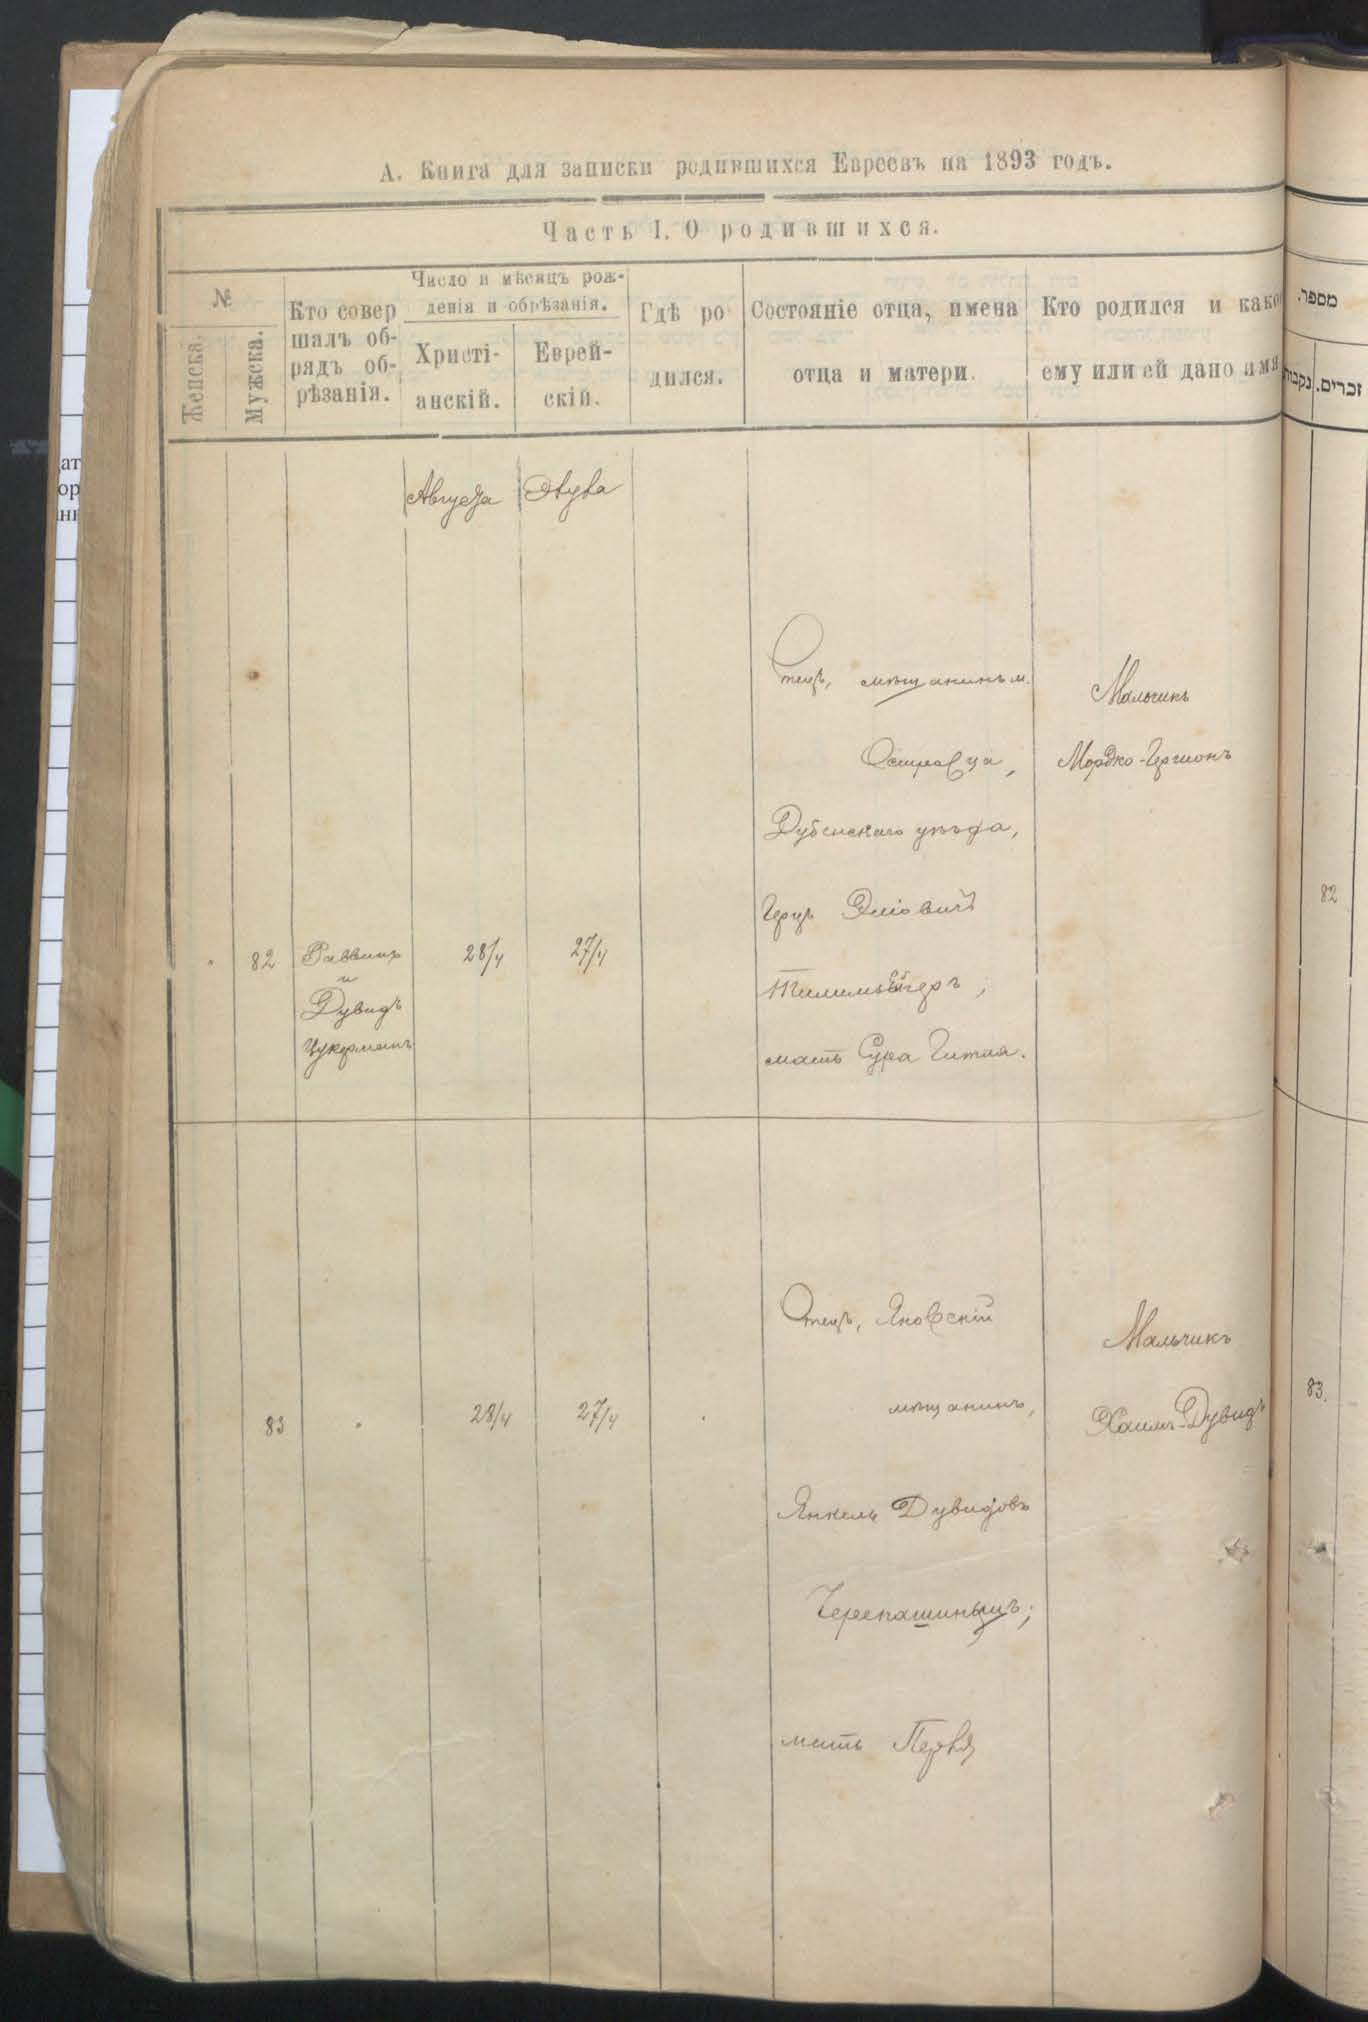 А. Книга для записки родившихся Евреевъ на 1893 годъ.
Часть I. О родившихся.
№
Женска.
Мужска.
Кто совер
шалъ об-
рядъ об-
рѣзанія.
Число и мѣсяцъ рож-
денія и обрѣзанія.
Христі-
анскій.
Еврей-
скій.
Гдѣ ро
дился.
Состояніе отца, имена
отца и матери.
Кто родился и како
ему или ей дано имя
מספר.
נקבות
זכרים.
Августа
82
Раввинъ
и
Дувидъ
Цукерманъ
28/4
27/4
Отецъ, мѣщанинъ м.
Дубенскаго уѣзда,
Герцъ
мать Сура Гитля.
Мальчикъ
Мордко-Гершонъ
82
83
28/4
27/4
Отецъ, Яновскій
мѣщанинъ,
Янкель Дувидовъ
мать
Мальчикъ
Хаимъ-Дувидъ
83.